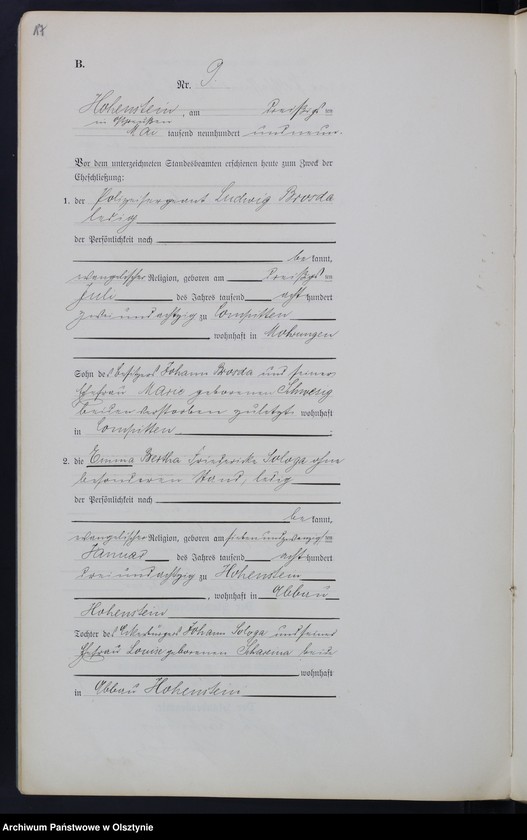 17
B.
Nr. 9.
Hohenstein, am dreißigsten
in Ostpreußen
Mai tausend neunhundert und neun.
Vor dem unterzeichneten Standesbeamten erschienen heute zum Zweck der
Eheschließung:
1. der Polizeisergeant Ludwig Brosda
ledig
der Persönlichkeit nach
be kannt,
evangelischer Religion, geboren am dreißigsten
Juli des Jahres tausend acht hundert
zwei und achtzig zuOmpitten
, wohnhaft in Mohrungen
Sohn des Besitzers Johann Brosda und seiner
Ehefrau Marie geborenen
beide verstorben zuletzt wohnhaft
in Compitten
2. die Emma Bertha Friedericke Sologa ohne
besonderen Stand, ledig
der Persönlichkeit nach
be kannt,
evangelischer Religion, geboren am siebenundzwanzigsten
Januar des Jahres tausend acht hundert
dreiundachtzig zu Hohenstein
, wohnhaft in Abbau
Hohenstein
Tochter des Ackerbürgers Johann Sologa und seiner
Ehefrau Louise geborenen beide
wohnhaft
in Abbau Hohenstein
Archiwum Państwowe w Olsztynie